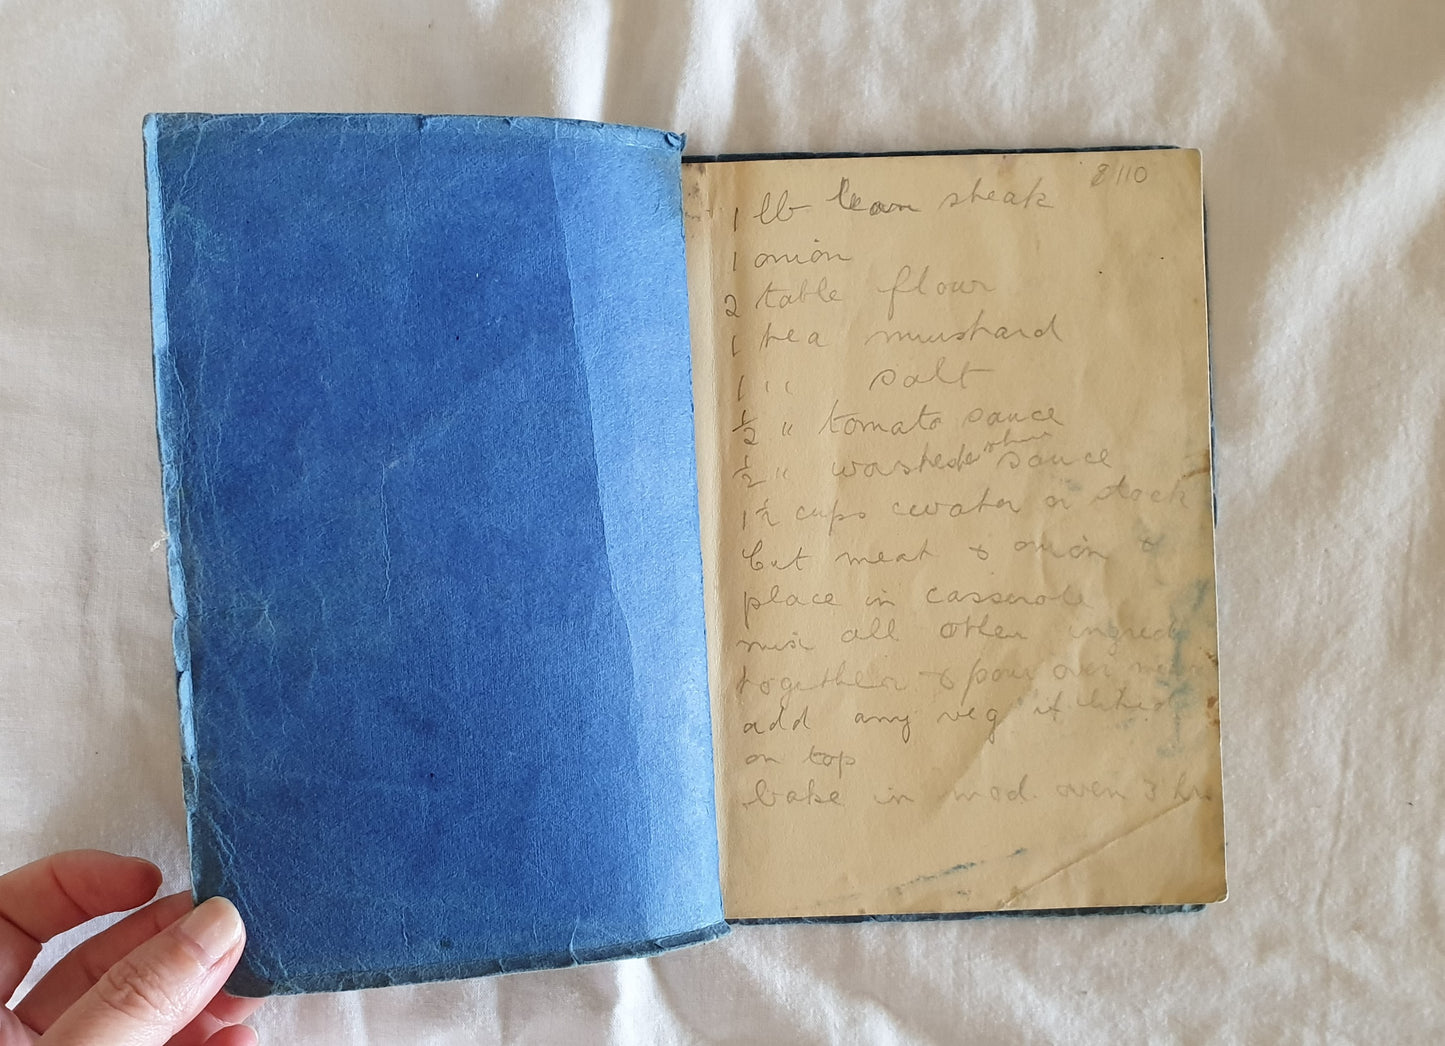 8/10
1 lb lean steak
1 onion
2 table flour
1 tea mustard
1 " salt
1/2 " tomato sauce
1/2 " sauce
1 1/2 cups water or stock
Cut meat & onion &
place in casserole
mix all other ingred
together & pour over
add any veg if liked
on top
bake in mod. oven 3 hrs